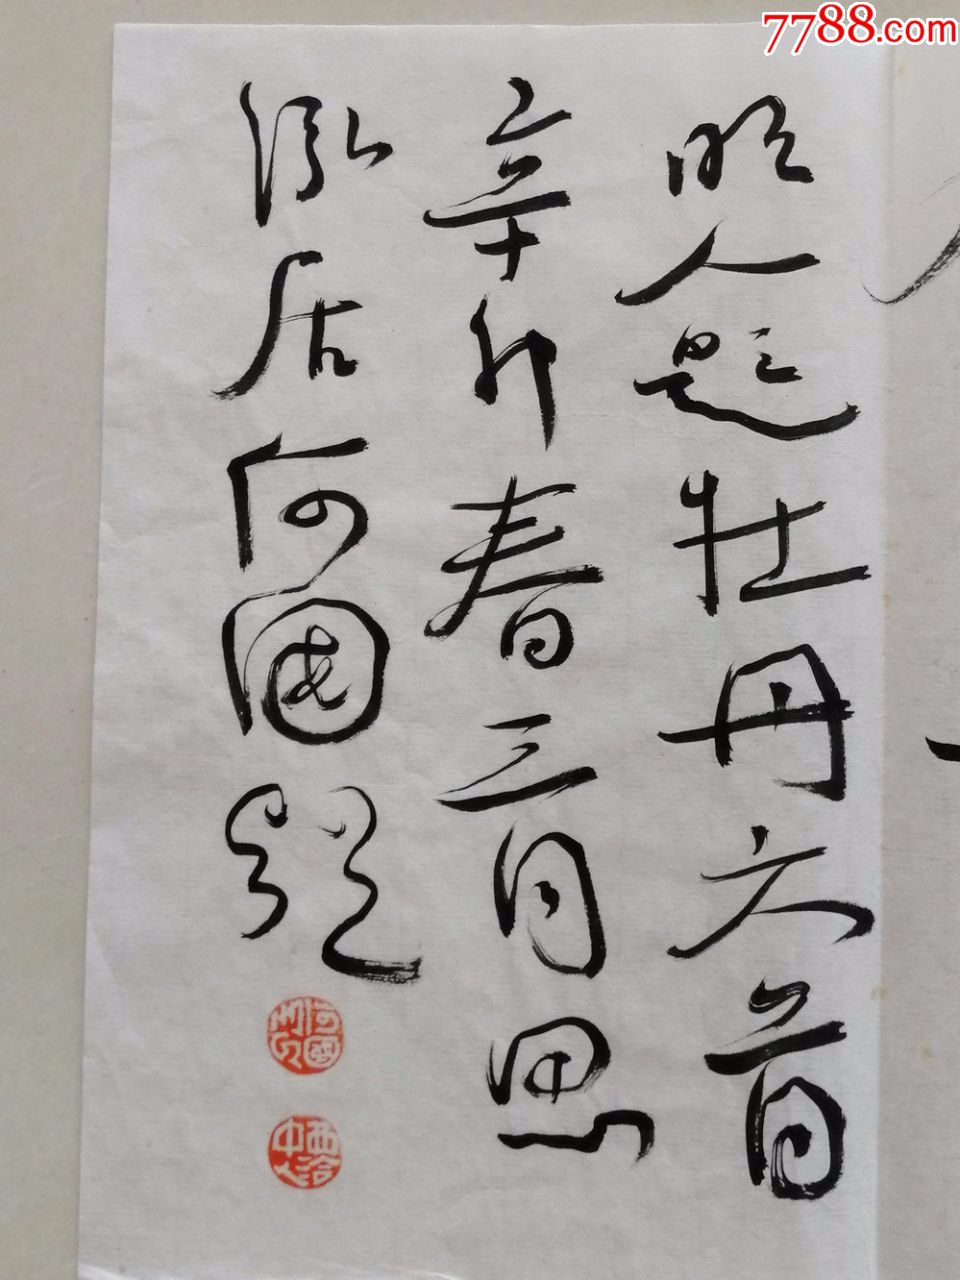 7788.com
明人題牡丹六首
辛卯春三月思
泓居何國題
何國門印
西泠中人